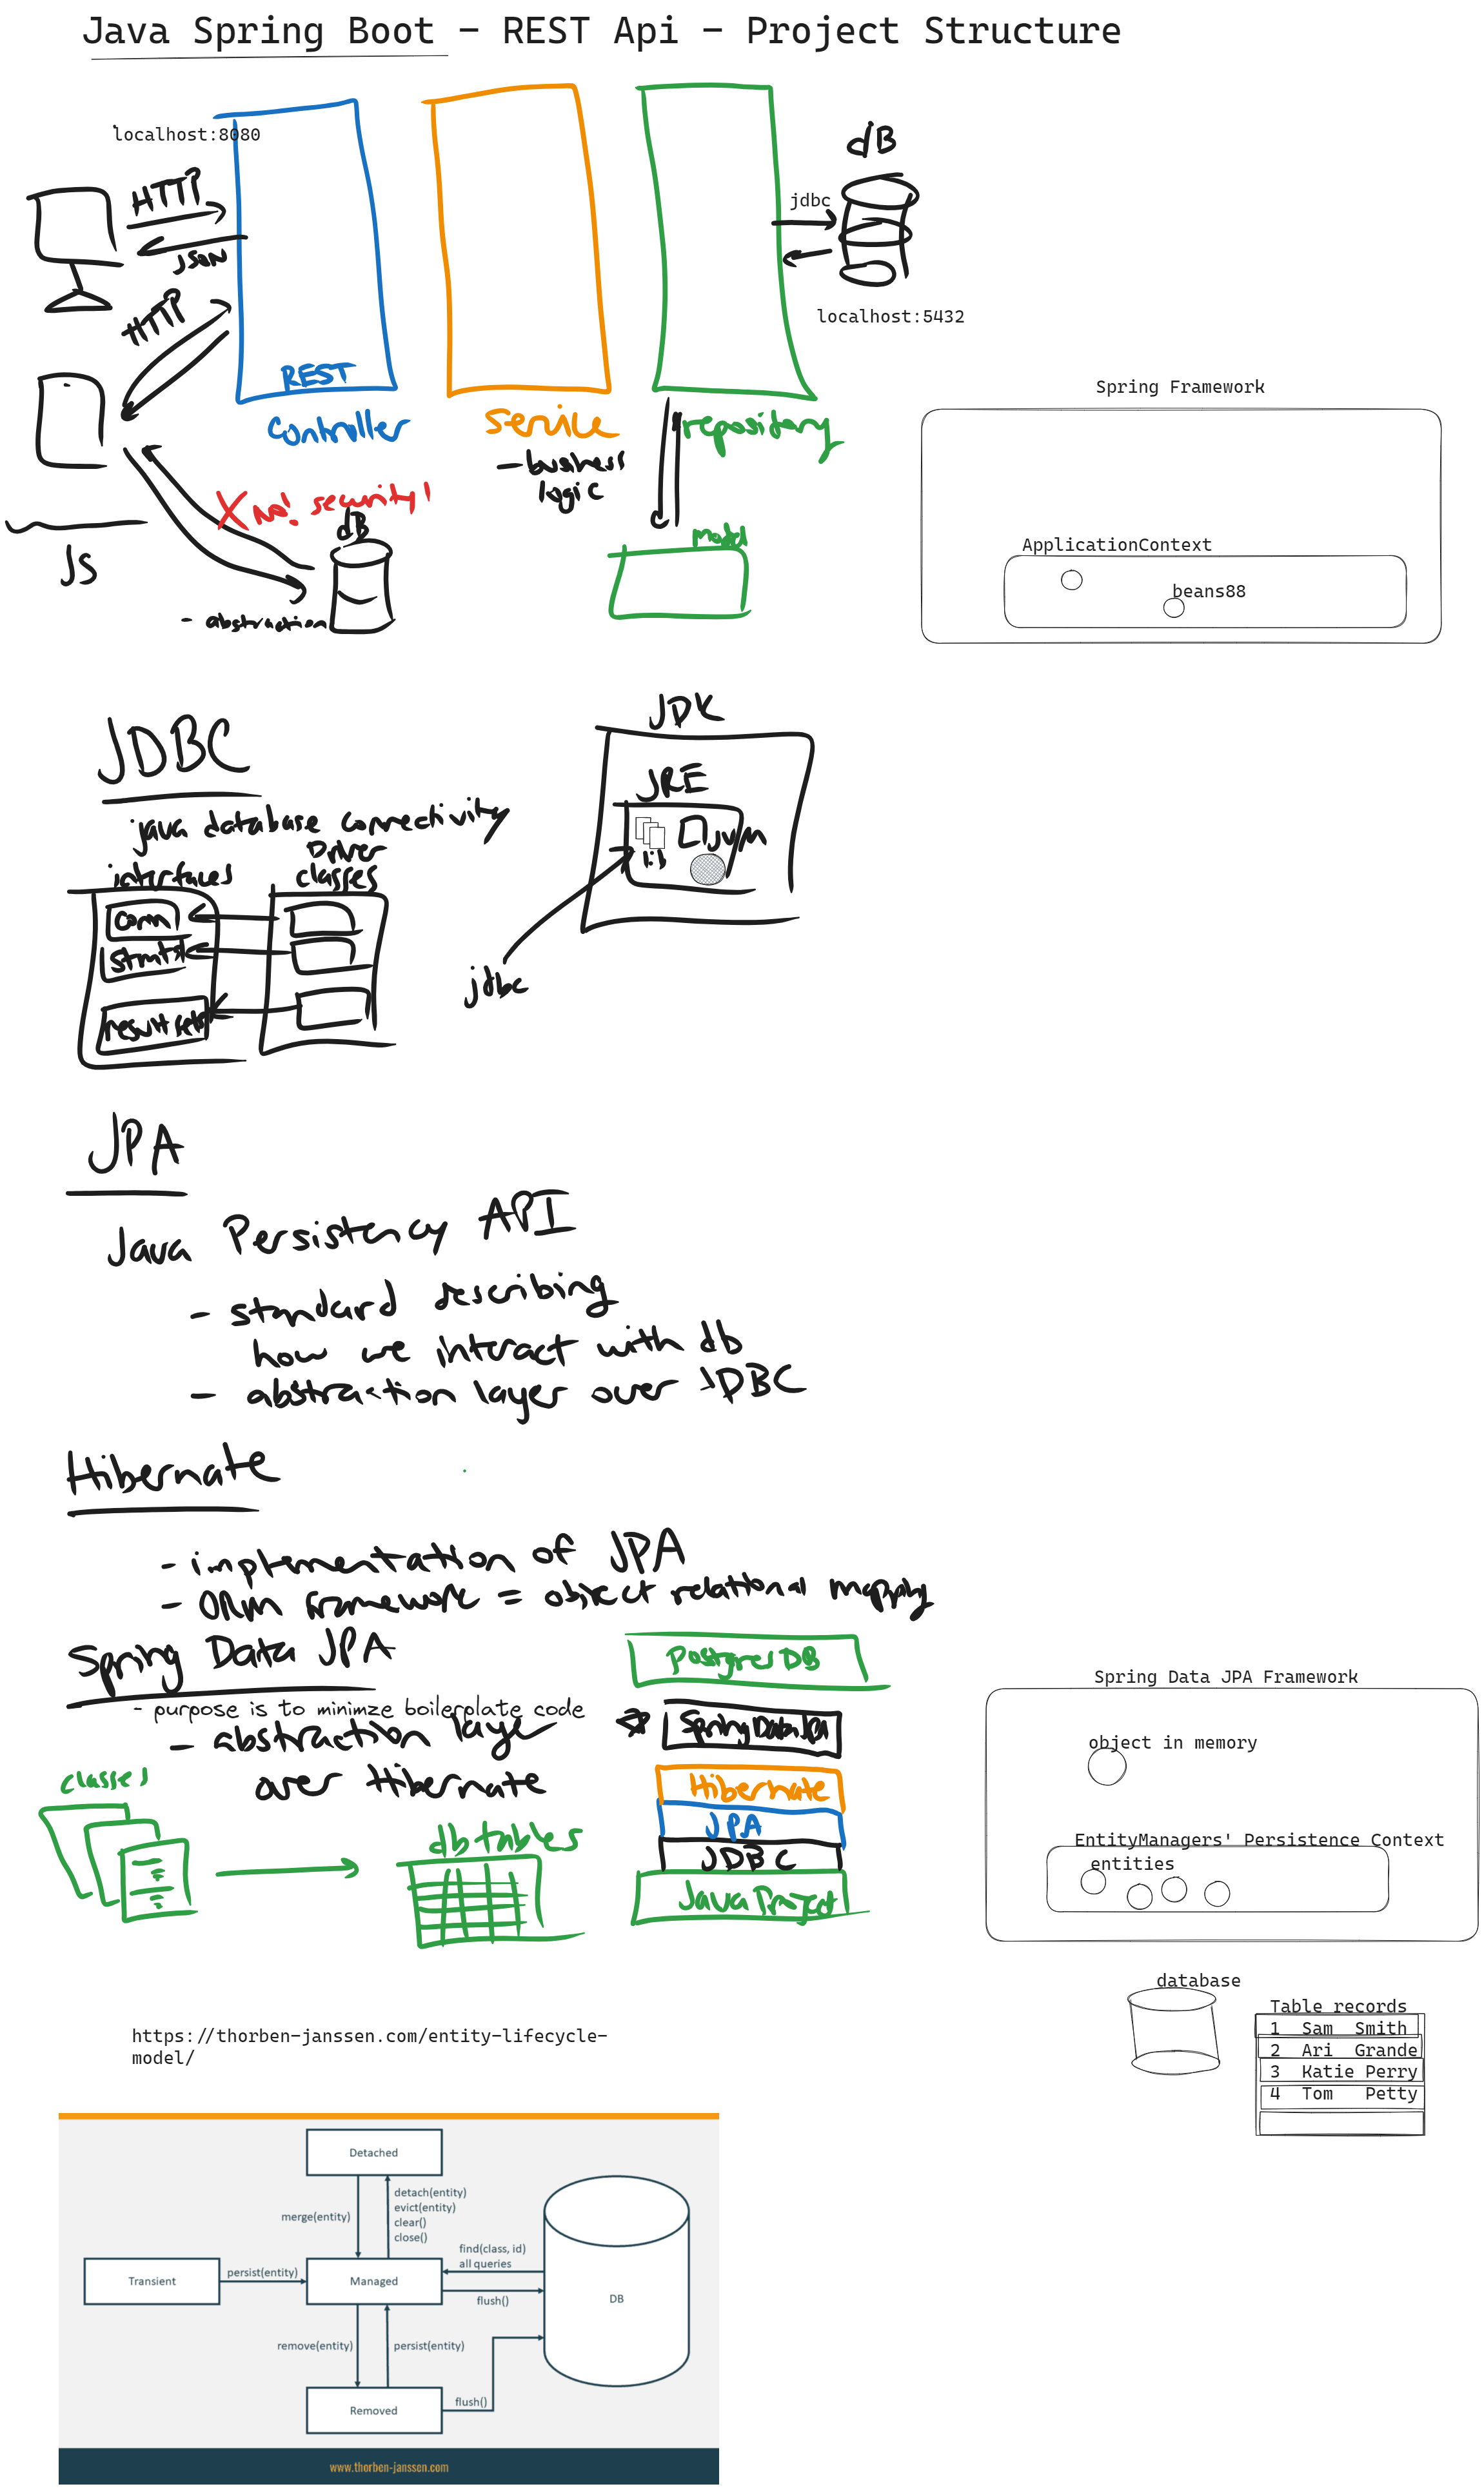 Java Spring Boot - REST Api - Project Structure
localhost:8080
HTTP
JSON
HTTP
JS
REST
Controller
Service
- business
logic
repository
model
jdbc
dB
localhost:5432
X no! security!
dB
- abstraction
Spring Framework
ApplicationContext
beans88
JDBC
java database connectivity
interfaces
Driver
classes
conn
stmts
result sets
JDK
JRE
lib
JVM
jdbc
JPA
Java Persistency API
- standard describing
how we interact with db
- abstraction layer over JDBC
Hibernate
- implementation of JPA
- ORM framework = object relational mapping
Spring Data JPA
- purpose is to minimze boilerplate code
- abstraction layer
over Hibernate
classes
db tables
Postgres DB
Spring Data JPA
Hibernate
JPA
JDBC
Java Project
Spring Data JPA Framework
object in memory
EntityManagers' Persistence Context
entities
database
Table records
1 Sam Smith
2 Ari Grande
3 Katie Perry
4 Tom Petty
https://thorben-janssen.com/entity-lifecycle-
model/
Detached
merge(entity)
detach(entity)
evict(entity)
clear()
close()
Transient
persist(entity)
Managed
find(class, id)
all queries
flush()
DB
remove(entity)
persist(entity)
Removed
flush()
www.thorben-janssen.com